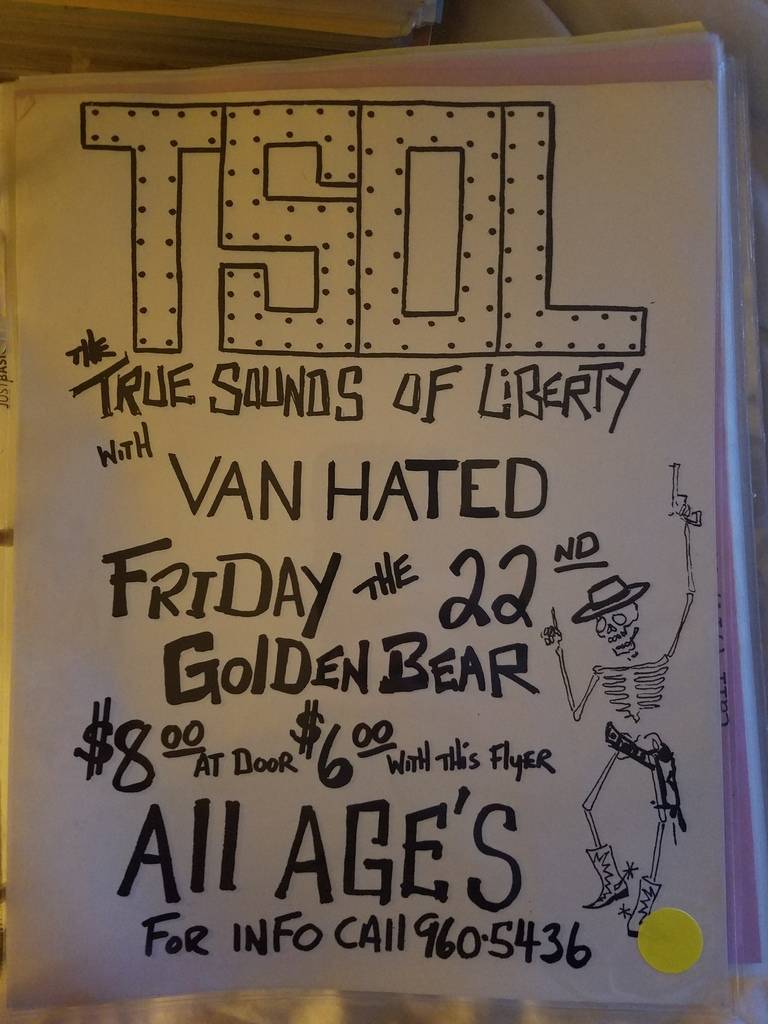 TSOL
THE TRUE SOUNDS OF LIBERTY
WITH VAN HATED
FRIDAY THE 22ND
GOLDEN BEAR
$8.00 AT DOOR $6.00 WITH THIS FLYER
All AGE'S
FOR INFO CAll 960-5436